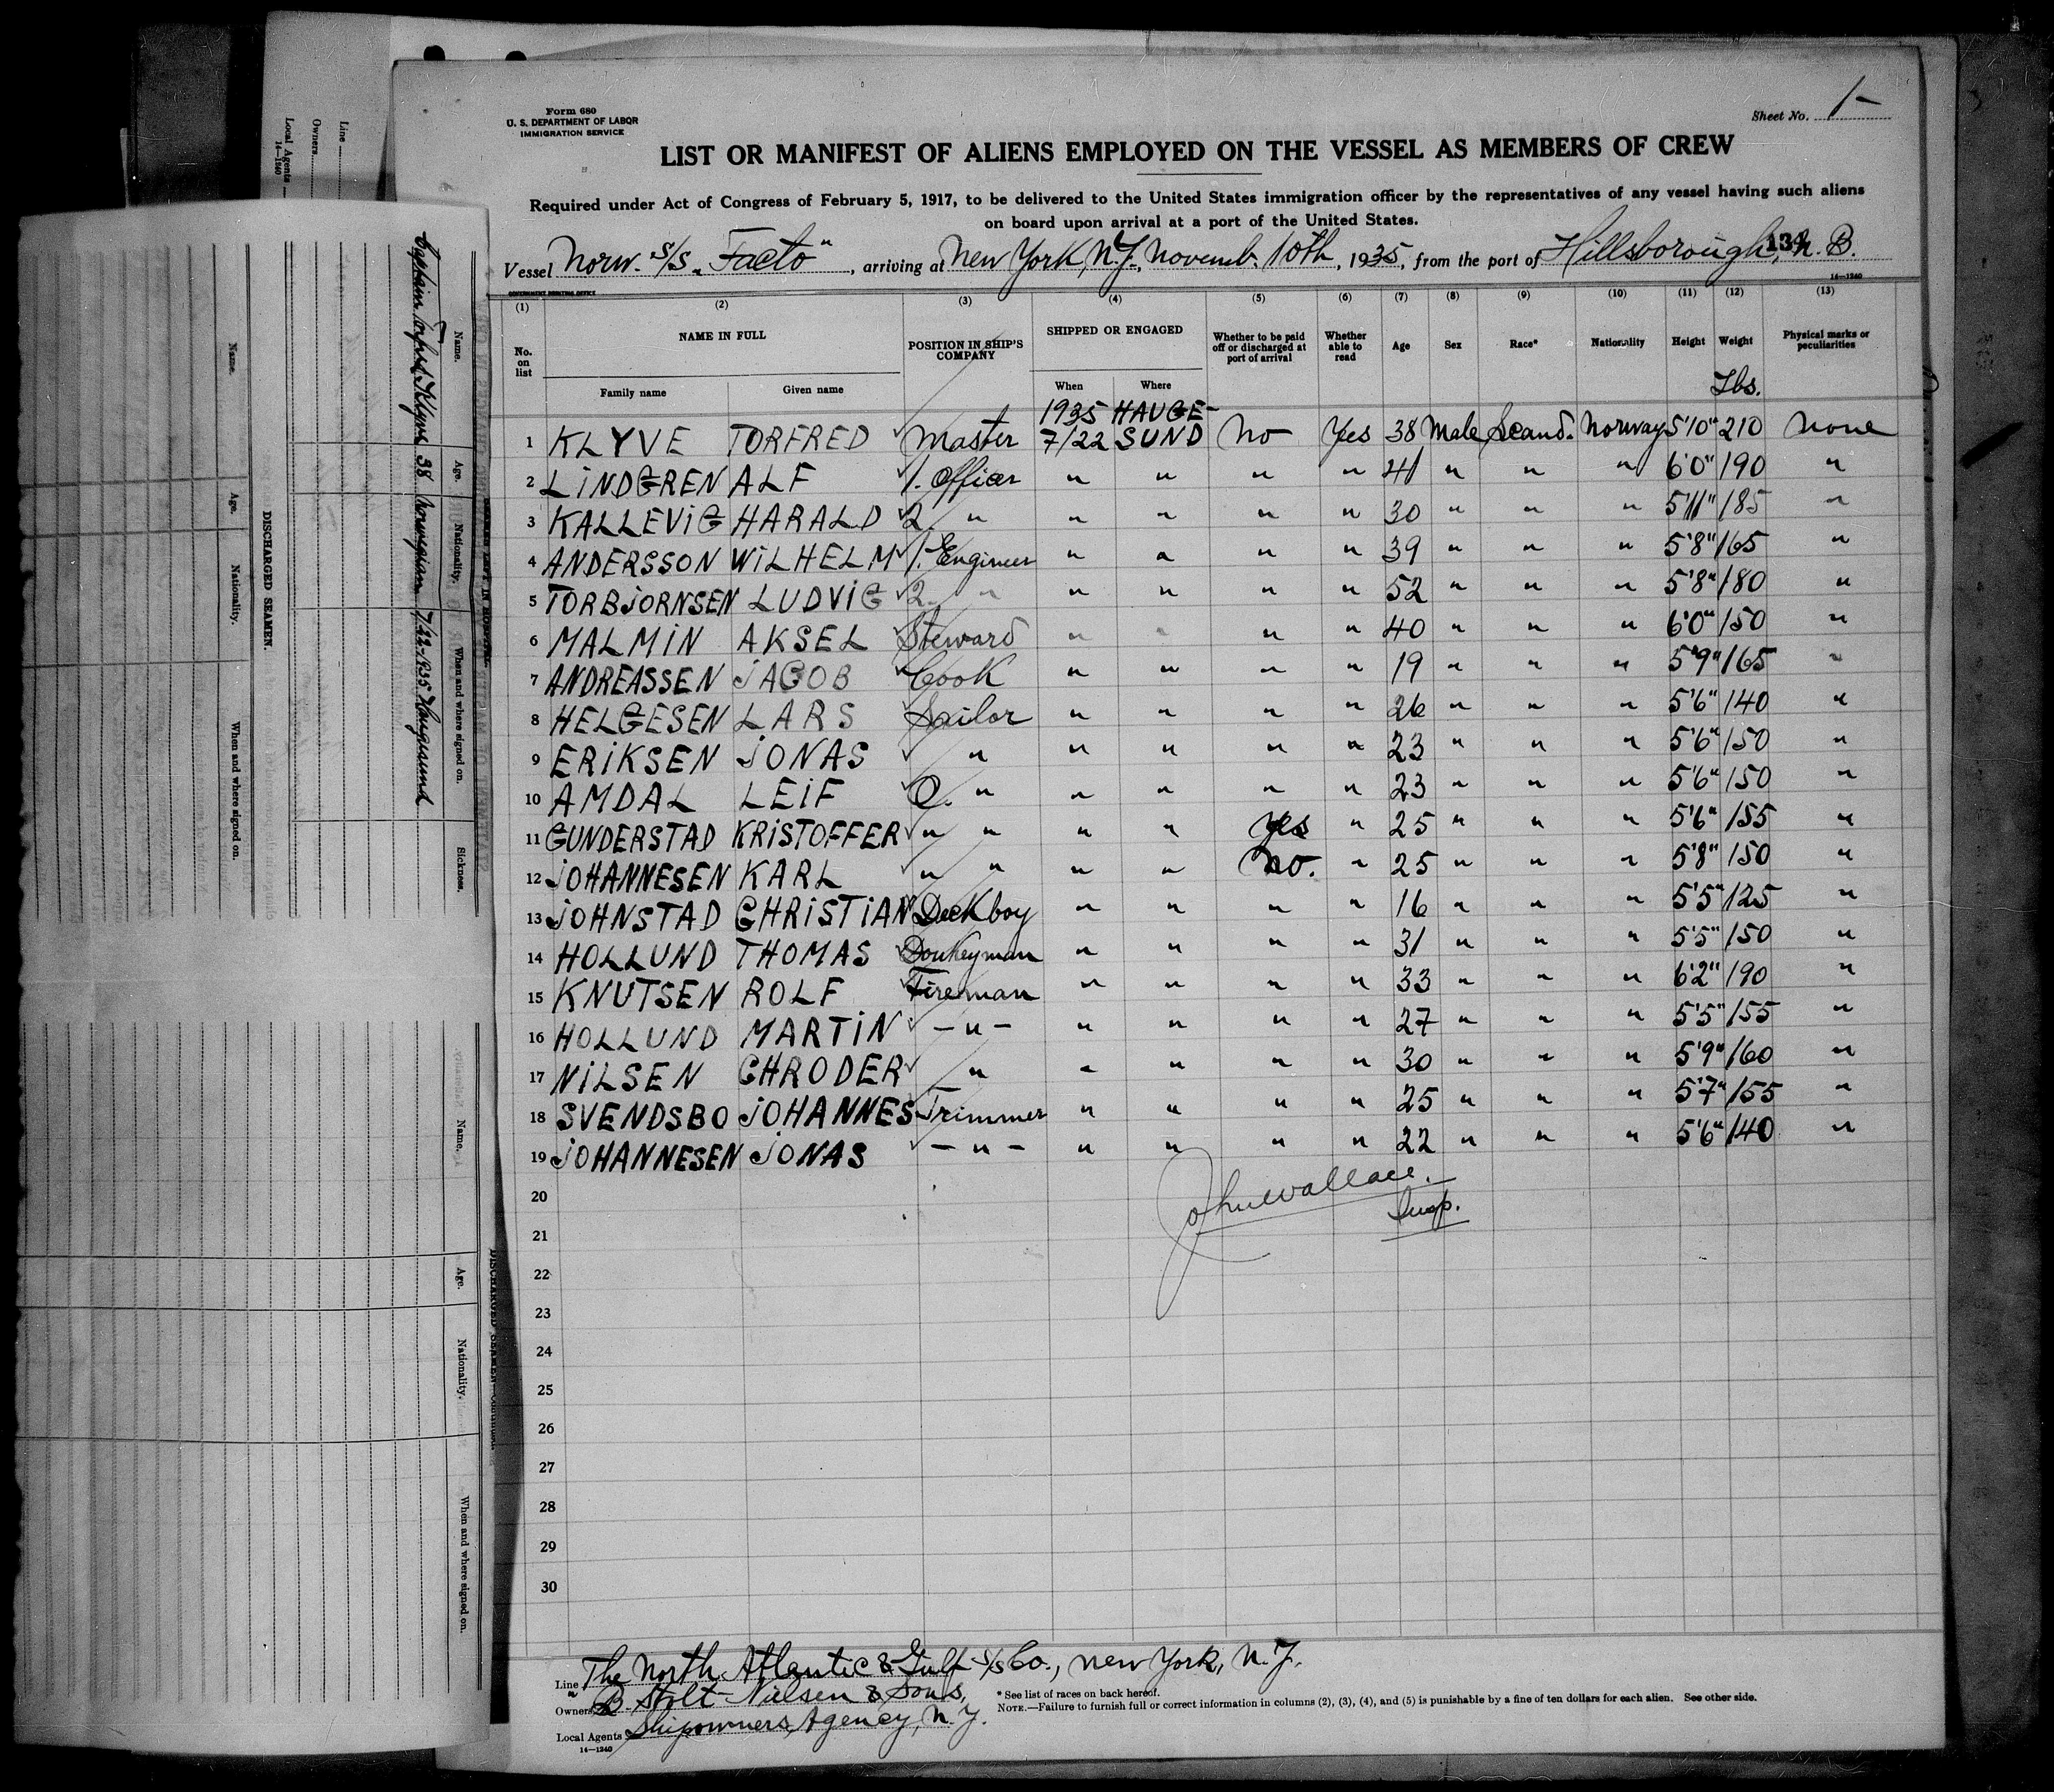 Form 680
U. S. DEPARTMENT OF LABOR
IMMIGRATION SERVICE
Sheet No. 1-
LIST OR MANIFEST OF ALIENS EMPLOYED ON THE VESSEL AS MEMBERS OF CREW
Required under Act of Congress of February 5, 1917, to be delivered to the United States immigration officer by the representatives of any vessel having such aliens
on board upon arrival at a port of the United States.
Vessel Norw. S/S. "Facto", arriving at New York, N.Y., Novemb. 10th, 1935, from the port of Hillsborough, N.B.
14—1240
GOVERNMENT PRINTING OFFICE
(1) (2) (3) (4) (5) (6) (7) (8) (9) (10) (11) (12) (13)
No. on list NAME IN FULL POSITION IN SHIP'S COMPANY SHIPPED OR ENGAGED Whether to be paid off or discharged at port of arrival Whether able to read Age Sex Race* Nationality Height Weight Physical marks or peculiarities
Family name Given name When Where Lbs.
1935 HAUGE-
1 KLYVE TORFRED Master 7/22 SUND No Yes 38 Male Scand. Norway 5'10" 210 None
2 LINDGREN ALF 1. Officer " " " " 41 " " " 6'0" 190 "
3 KALLEVIG HARALD 2. " " " " " 30 " " " 5'11" 185 "
4 ANDERSSON WILHELM 1. Engineer " " " " 39 " " " 5'8" 165 "
5 TORBJORNSEN LUDVIG 2. " " " " " 52 " " " 5'8" 180 "
6 MALMIN AKSEL Steward " " " " 40 " " " 6'0" 150 "
7 ANDREASSEN JACOB Cook " " " " 19 " " " 5'9" 165 "
8 HELGESEN LARS Sailor " " " " 26 " " " 5'6" 140 "
9 ERIKSEN JONAS " " " " " 23 " " " 5'6" 150 "
10 AMDAL LEIF O. " " " " " 23 " " " 5'6" 150 "
11 GUNDERSTAD KRISTOFFER " " " " Yes " 25 " " " 5'6" 155 "
12 JOHANNESEN KARL " " " " No. " 25 " " " 5'8" 150 "
13 JOHNSTAD CHRISTIAN Deckboy " " " " 16 " " " 5'5" 125 "
14 HOLLUND THOMAS Donkeyman " " " " 31 " " " 5'5" 150 "
15 KNUTSEN ROLF Fireman " " " " 33 " " " 6'2" 190 "
16 HOLLUND MARTIN - " - " " " " 27 " " " 5'5" 155 "
17 NILSEN CHRODER " " " " " 30 " " " 5'9" 160 "
18 SVENDSBO JOHANNES Trimmer " " " " 25 " " " 5'7" 155 "
19 JOHANNESEN JONAS - " - " " " " 22 " " " 5'6" 140 "
20
John Wallace.
Insp.
21
22
23
24
25
26
27
28
29
30
Line The North Atlantic & Gulf S/S Co., New York, N.Y.
Owners B. Stolt-Nielsen & Sons,
Local Agents Shipowners Agency, N.Y.
14—1240
* See list of races on back hereof.
NOTE.—Failure to furnish full or correct information in columns (2), (3), (4), and (5) is punishable by a fine of ten dollars for each alien. See other side.
Line
Owners
Local Agents
14—1240
Name. Age. Nationality. When and where signed on. Sickness.
Captain Torfred Klyve 38 Norwegian 7/22-1935 Haugesund
DISCHARGED SEAMEN.
Name. Age. Nationality. When and where signed on.
Name. Age. Nationality. When and where signed on.